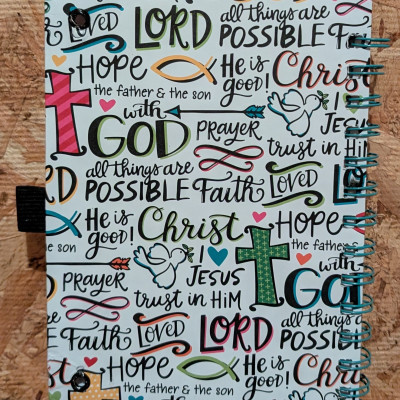 Loved LORD all things are POSSIBLE F
HOPE He is good! Chris
the father & the son
with GOD PRAYER JESU
trust in HiM
RD all things are POSSIBLE Faith Loved L
He is good! Christ HOPE
the son the father &
with GOD
PRAYER I JESUS
trust in HiM
Faith Loved LORD all things are POSSIBL
HOPE He is good! Chris
the father & the son
with